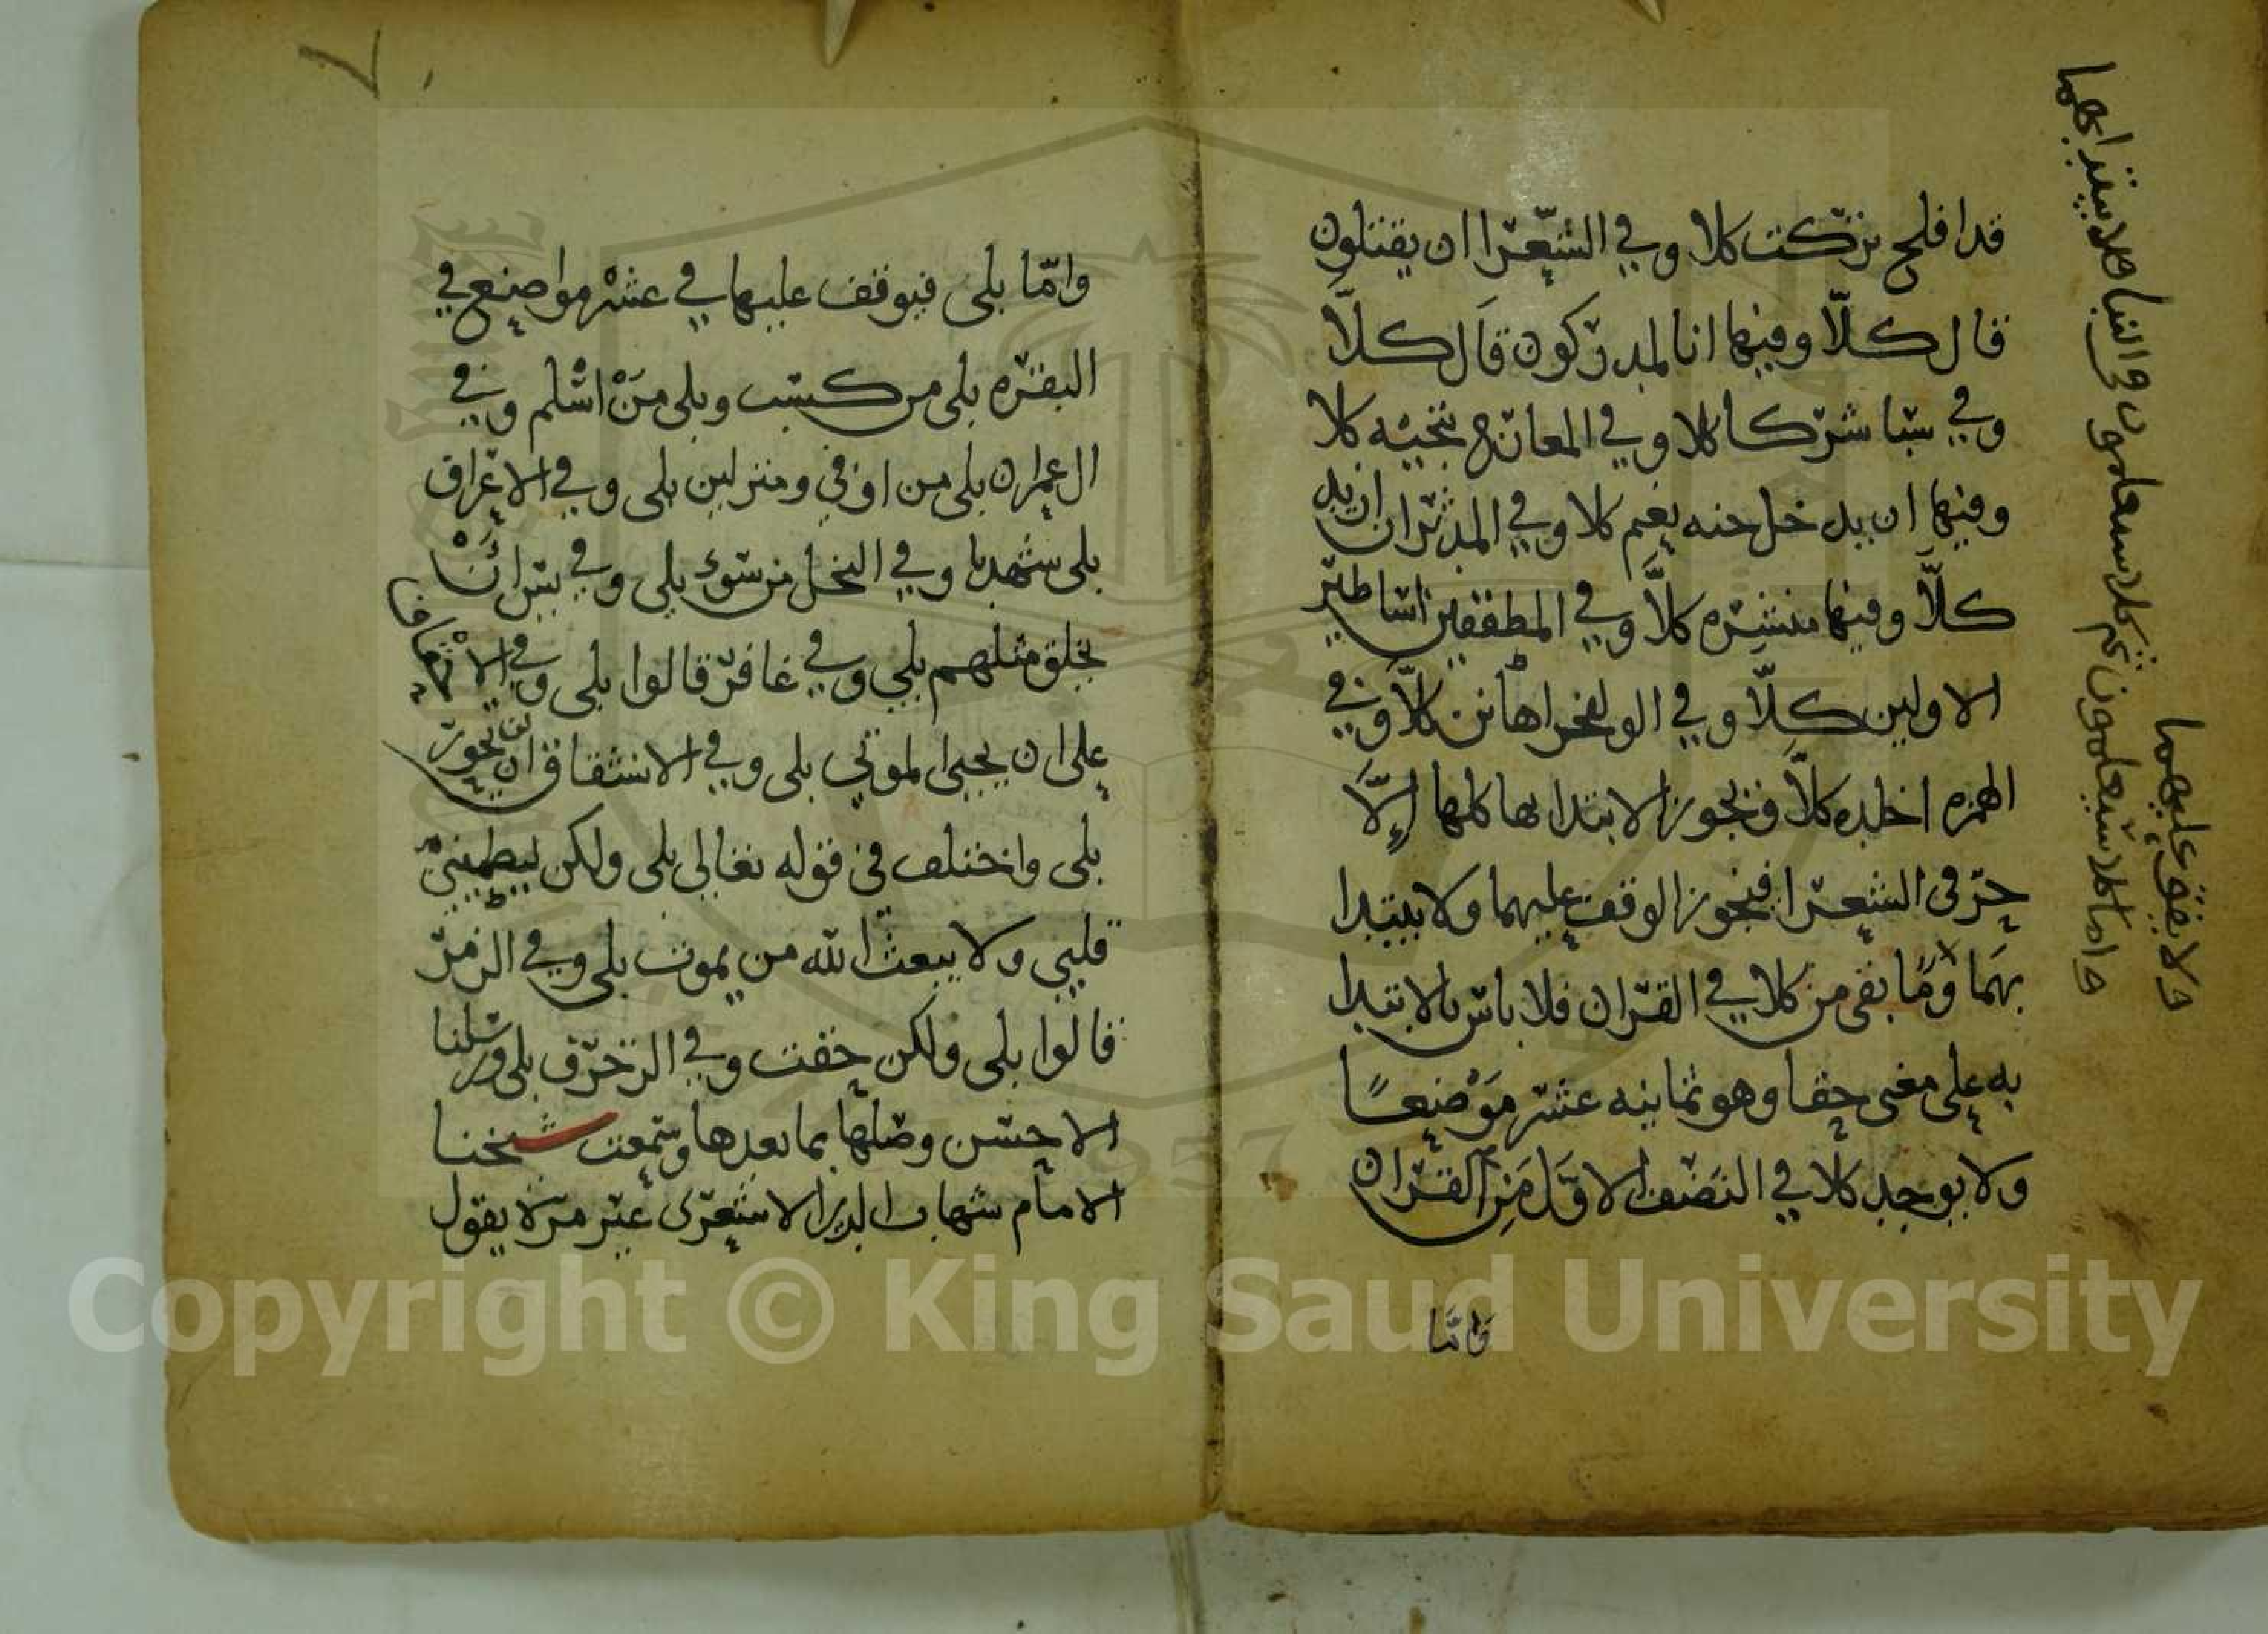 قد افلح تركت كلا وفي الشعرا ان يقتلون
قال كلّا وفيها انا لمدركون قال كلّا
وفي سبا شركا كلا وفي المعارج ينجيه كلا
وفيها ان يدخل جنه نعيم كلا وفي المدثر ان ازيد
كلّا وفيها منشره كلّا وفي المطففين اساطير
الاولين كلّا وفي والفجر اهانن كلّا وفي
الهمزه اخلده كلّا فيجوز الابتدا بها كلها إلّا
حرفي الشعرا فيجوز الوقف عليهما ولا يبتدا
بهما وما بقى من كلا في القران فلا باس بالابتدا
به على معنى حقا وهو ثمانيه عشر موضعًا
ولا يوجد كلا في النصف الاول من القران
وامّا
واما كلا سيعلمون ثم كلا سيعلمون في النبا فلا يبتدا بهما
ولا يقف عليهما
وامّا بلى فيوقف عليها في عشر مواضع في
البقره بلى من كسب وبلى من اسلم وفي
ال عمران بلى من اوفى ومنزلين بلى وفي الاعراف
بلى شهدنا وفي النحل من سوء بلى وفي يس ان
يخلق مثلهم بلى وفي غافر قالوا بلى وفي الاحقاف
على ان يحيى الموتى بلى وفي الانشقاق ان لن يحور
بلى واختلف في قوله تعالى بلى ولكن ليطمئن
قلبي ولا يبعث الله من يموت بلى وفي الزمر
قالوا بلى ولكن حقت وفي الزخرف بلى ورسلنا
الاحسن وصلها بما بعدها وسمعت شيخنا
الامام شهاب الدين الاشعرى غير مرّة يقول
٧
Copyright © King Saud University
1957